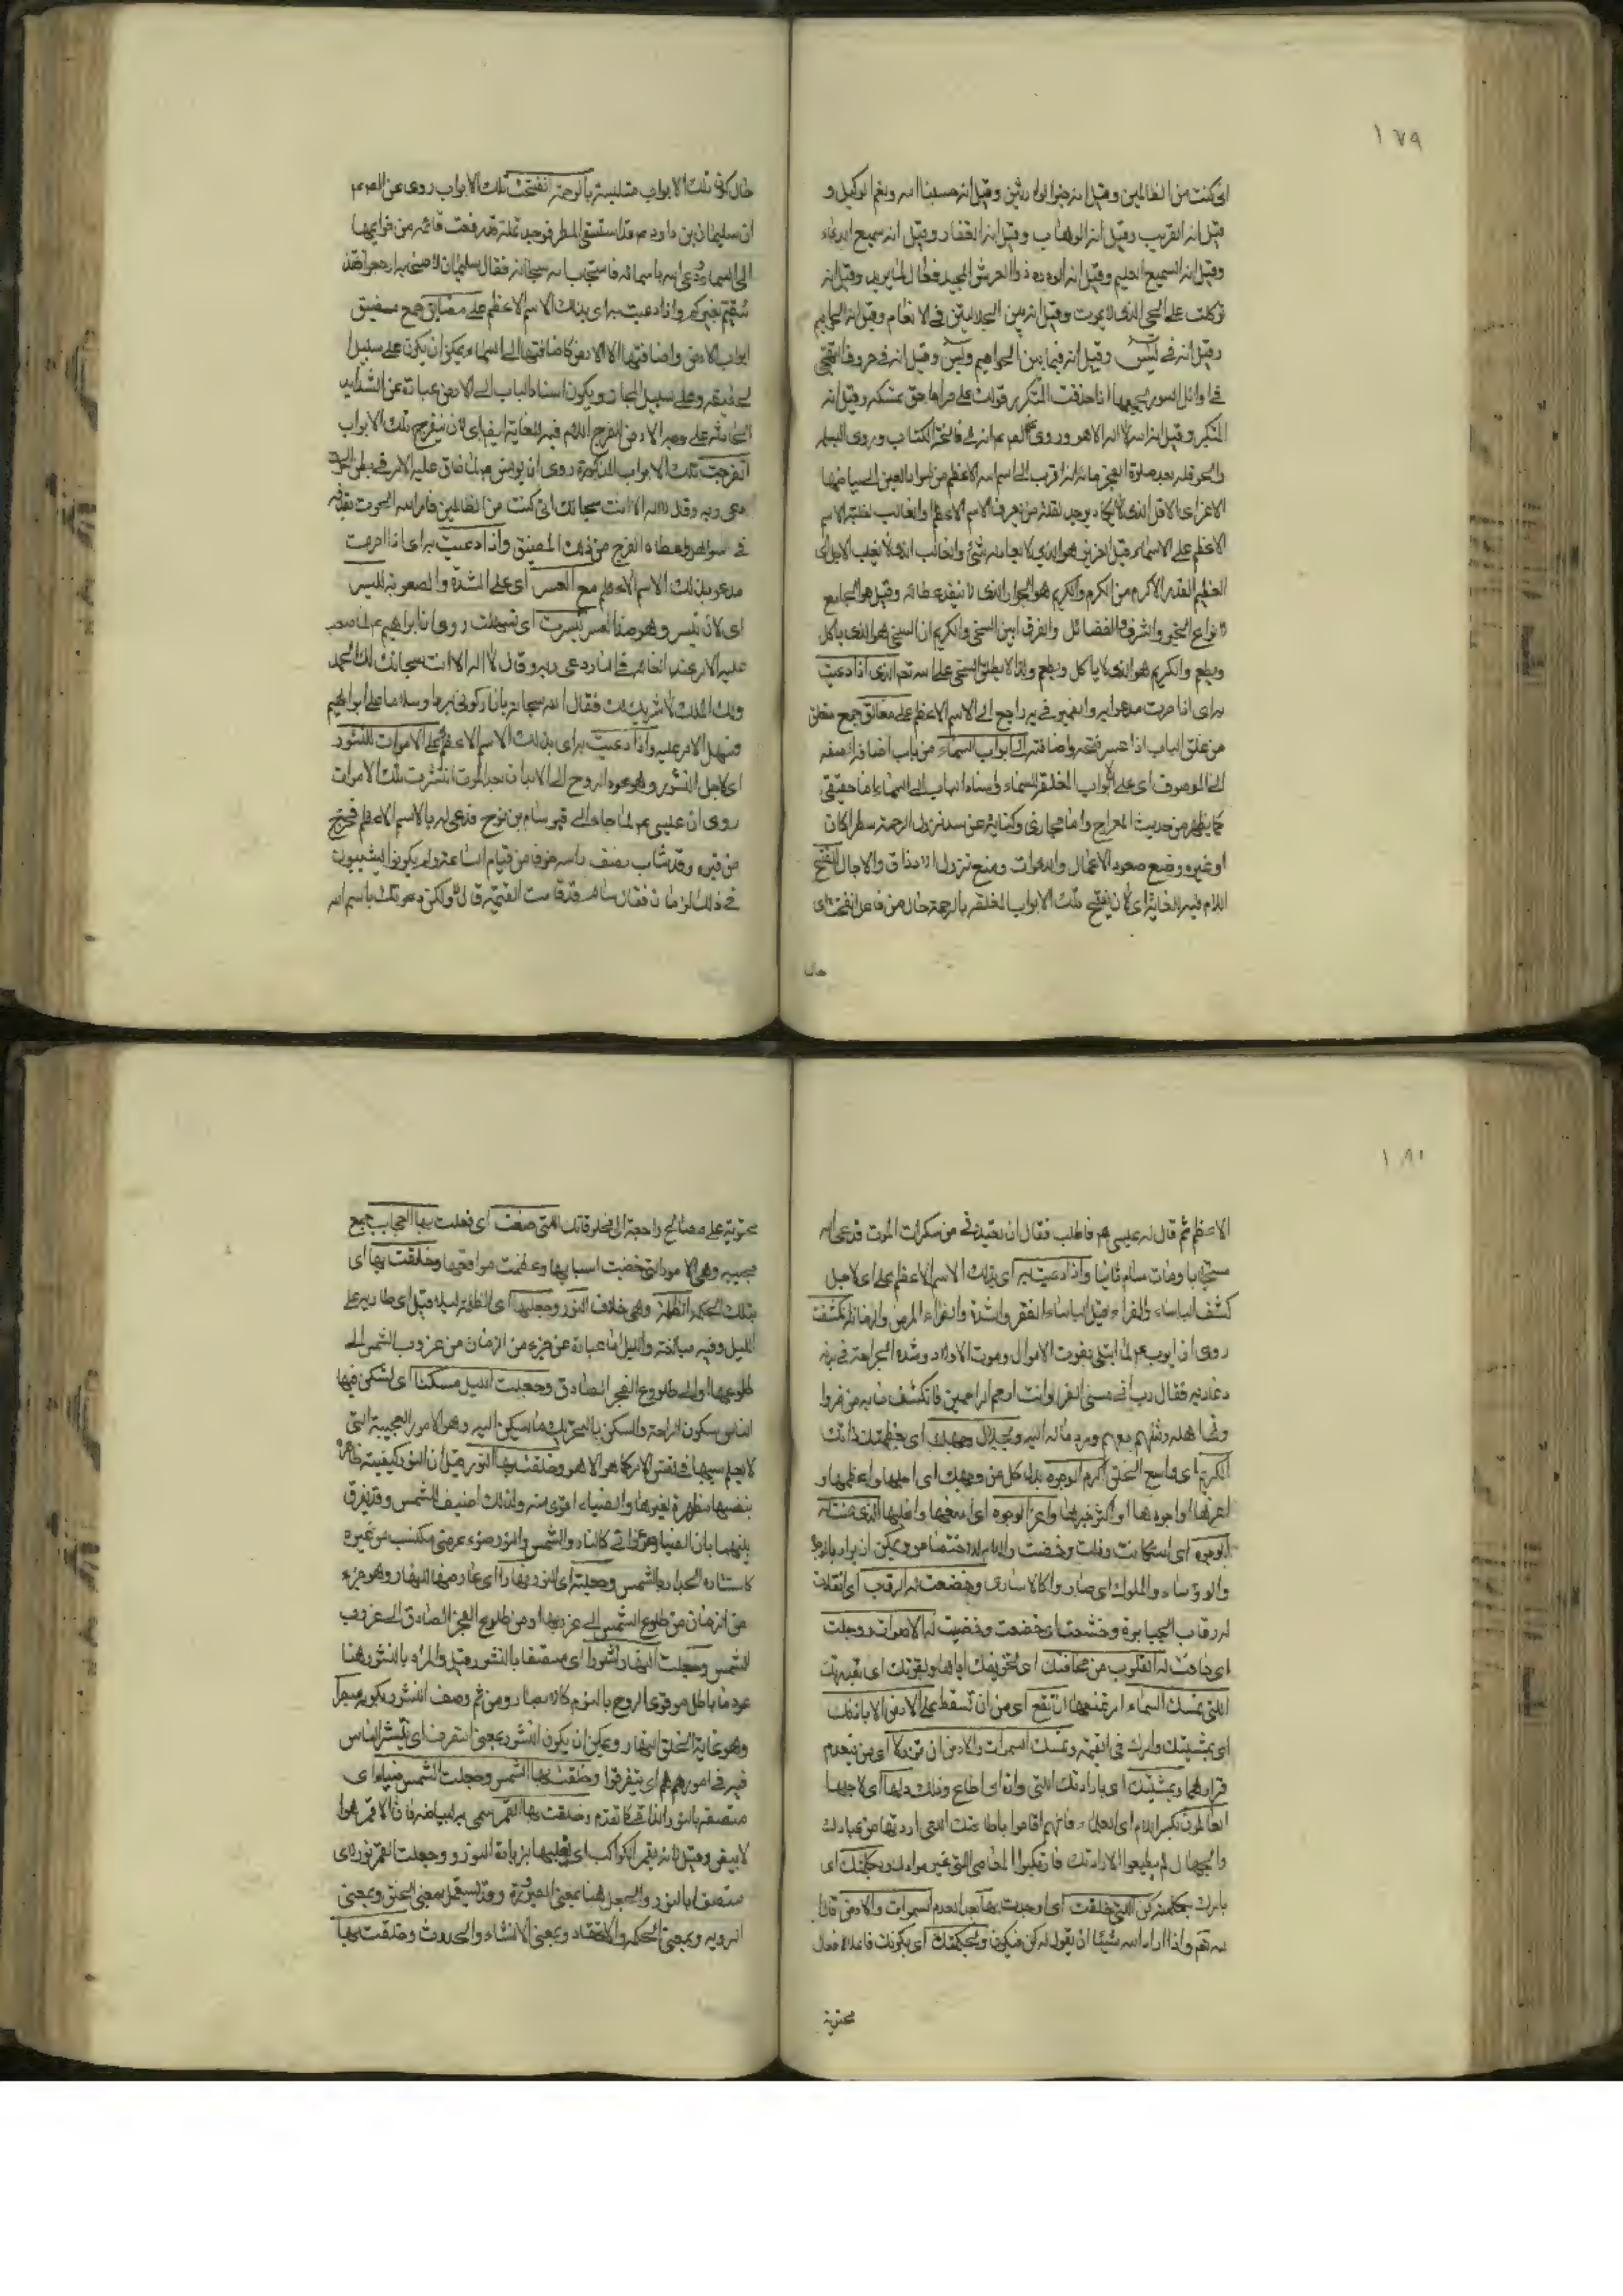 ١٧٩
انى كنت من الظالمين وقيل انه خير الوارثين وقيل انه حسبنا الله ونعم الوكيل و
قيل انه القريب وقيل انه الوهاب وقيل انه الغفار وقيل انه سميع الدعاء
وقيل انه السميع العليم وقيل انه الودود ذو العرش المجيد فعال لما يريد وقيل انه
توكلت على الحي الذى لا يموت وقيل انه بين الجلالتين فى الانعام وقيل انه الحواميم
وقيل انه فى يس وقيل انه فيما بين الحواميم ويس وقيل انه فى حروف التهجى
فى اوائل السور يجمعها اذا حذفت المتكرر قولك على صراط حق نمسكه وقيل انه
المتكبر وقيل انه الله لا اله الا هو وروى انه فى فاتحة الكتاب وروى البسملة
والحوقلة بعد صلوة الفجر مائة انه اقرب الى اسم الله الاعظم من سواد العين الى بياضها
الاعز اى الاقل الذى لا يكاد يوجد لقلة من يعرف الاسم الاعظم والغالب لغلبة الاسم
الاعظم على الاسماء وقيل العزيز هو الذى لا يعادله شئ والغالب الذى لا يغلب الاجل اى
العظيم القدر الاكرم من الكرم والكريم هو الجواد الذى لا ينفد عطائه وقيل هو الجامع
لانواع الخير والشرف والفضائل والفرق بين السخى والكريم ان السخى هو الذى ياكل
ويطعم والكريم هو الذى لا ياكل ويطعم ولذا لا يطلق السخى على الله تعم الذى اذا دعيت
به اى اذا صرت مدعوا به والضمير فى به راجع الى الاسم الاعظم على مغالق جمع مغلق
من غلق الباب اذا عسر فتحه واضافته الى ابواب السماء من باب اضافة الصفة
الى الموصوف اى على الابواب المغلقة للسماء واسناد الباب الى السماء اما حقيقى
كما يظهر من حديث المعراج واما مجازى وكناية عن سد نزول الرحمة مطرا كان
او غيره ومنع صعود الاعمال والدعوات ومنع نزول الارزاق والاجال للفتح
اللام فيه للغاية اى لان يفتح تلك الابواب المغلقة بالرحمة حال من فاعل انفتحت اى
حال
حال كون تلك الابواب متلبسة بالرحمة انفتحت تلك الابواب روى عن
ان سليمان بن داود قد استسقى المطر فوجد نملة قد رفعت قائمة من قوايمها
الى السماء ودعى الله باسمائه فاستجاب الله سبحانه فقال سليمان لاصحابه ارجعوا فقد
سقيتم بغيركم واذا دعيت به اى بذلك الاسم الاعظم على مضايق جمع مضيق
ابواب الارض واضافتها الى الارض كاضافتها الى السماء يمكن ان يكون على سبيل
الحقيقة وعلى سبيل المجاز ويكون اسناد الباب الى الارض عبارة عن الشدايد
الحادثة على وجه الارض للفرج اللام فيه للغاية ايضا اى لان تنفرج تلك الابواب
انفرجت تلك الابواب المذكورة روى ان يونس لما ضاق عليه الامر فى بطن الحوت
دعى ربه وقال لا اله الا انت سبحانك انى كنت من الظالمين فامر الله الحوت بقذفه
فى سواحل واعطاه الفرج من ذلك المضيق واذا دعيت به اى اذا صرت
مدعو بذلك الاسم الاعظم مع العسر اى على الشدة والصعوبة لليسر
اى لان تيسر وهو ضد العسر تيسرت اى تسهلت روى ان ابراهيم لما صعب
عليه الامر عند القائه فى النار دعى ربه وقال لا اله الا انت سبحانك لك الحمد
ولك الملك لا شريك لك فقال الله سبحانه يا نار كونى بردا وسلاما على ابراهيم
وسهل الامر عليه واذا دعيت به اى بذلك الاسم الاعظم على الاموات للنشور
اى لاجل النشور وهو عود الروح الى الابدان بعد الموت انتشرت تلك الاموات
روى ان عيسى لما جاء الى قبر سام بن نوح فدعى له بالاسم الاعظم فخرج
من قبره وقد شاب نصف راسه خوفا من قيام الساعة ولم يكونوا يشيبون
فى ذلك الزمان فقال سام قد قامت القيمة قال لا ولكن دعوتك باسم الله
١٨٠
الاعظم ثم قال له عيسى فاطلب فقال ان تعيذنى من سكرات الموت فدعى الله
مستجابا ومات سام ثانيا واذا دعيت به اى بذلك الاسم الاعظم على اى لاجل
كشف الباساء والضراء قيل الباساء الفقر والشدة والضراء المرض والزمانة تكشفت
روى ان ايوب لما ابتلى بفوت الاموال وموت الاولاد وشدة الجراحة فى بدنه
دعا ربه فقال رب انى مسنى الضر وانت ارحم الراحمين فانكشف ما به من ضر وا
وتها اهله ومثلهم معهم ورد ماله اليه وبجلال وجهك اى بعظمة ذاتك
الكريم اى واسع الخلق اكرم الوجوه بدل كل من وجهك اى اجلها واعظمها و
اعرفها او اجودها او اكثر خيرها واعز الوجوه اى امنعها واغلبها الذى عنت له
الوجوه اى استكانت وذلت وخضعت واللام للاختصاص ويمكن ان يراد بالوجوه
والرؤساء والملوك اى صاروا كالاسارى وخضعت له الرقاب اى انقادت
له رقاب الجبابرة وخشعت اى خضعت وخفيت له الاصوات ووجلت
اى خافت له القلوب من مخافتك اى لتخويفك اياها وبقوتك اى بقدرتك
التى تمسك السماء اى تمنعها ان تقع اى من ان تسقط على الارض الا باذنك
اى بمشيتك وامرك فى القيمة وتمسك السموات والارض ان تزولا اى من بعدم
قرارهما وبمشيتك اى بارادتك التى دان اى اطاع وذلك لها اى لاجلها
العالمون بكسر اللام اى العلماء فانهم اقاموا بطاعتك التى اردتها من عبادك
والجهال لم يطيعوا لارادتك فارتكبوا المعاصى التى غير مرادك وبكلمتك اى
بامرك بكلمة كن التى خلقت اى اوجدت بها بعد العدم السموات والارض قال
الله تعم واذا اراد الله شيئا ان يقول له كن فيكون وبحكمتك اى بكونك فاعلا لافعال
محتوية
محتوية على مصالح راجعة الى مخلوقاتك التى صنعت اى فعلت بها العجايب جمع
عجيبة وهى الامور التى خفيت اسبابها وعظمت مواقعها وخلقت بها اى
بتلك الحكمة الظلمة وهى خلاف النور وجعلتها اى الظلمة ليلا قيل اى طارية على
الليل وفيه مباحثة والليل اما عبارة عن جزء من الزمان من غروب الشمس الى
طلوعها او الى طلوع الفجر الصادق وجعلت الليل مسكنا اى لتسكن فيها
الناس سكون الراحة والسكن بالتحريك ما يسكن اليه وهو الامور العجيبة التى
لا يعلم سببها فى نفس الامر كما هو الا هو وخلقت بها النور قيل ان النور كيفية ظاهرة
بنفسها مظهرة لغيرها والضياء اقوى منه ولذلك اضيف للشمس وقد يفرق
بينهما بان الضياء ضوء ذاتى كالنار والشمس والنور ضوء عرضى مكتسب من غيره
كاستنارة الجدار بالشمس وجعلته اى النور نهارا اى عارضها للنهار وهو جزء
من الزمان من طلوع الشمس الى غروبها او من طلوع الفجر الصادق الى غروب
الشمس وجعلت النهار نشورا اى متصفا بالنشور وقيل والمراد بالنشور هنا
عود ما بطل من قوى الروح بالنوم كالابصار ومن ثم وصف النشور بكونه مبصرا
وهو غاية لخلق النهار ويمكن ان يكون النشور بمعنى التفرق اى تنتشر الناس
فيه فى امورهم اى يتفرقوا وخلقت بها الشمس وجعلت الشمس ضياء اى
متصفة بالنور الذاتى كما تقدم وخلقت بها القمر سمى به لبياضه فان الاقمر هو ا
لابيض وقيل لانه يقمر الكواكب اى يغلبها بزيادة النور وجعلت القمر نورا اى
متصفا بالنور والجعل هنا بمعنى الصيرورة وقد يستعمل بمعنى الخلق وبمعنى
الروية وبمعنى الحكم والاعتقاد وبمعنى الانشاء والحدوث وخلقت بها